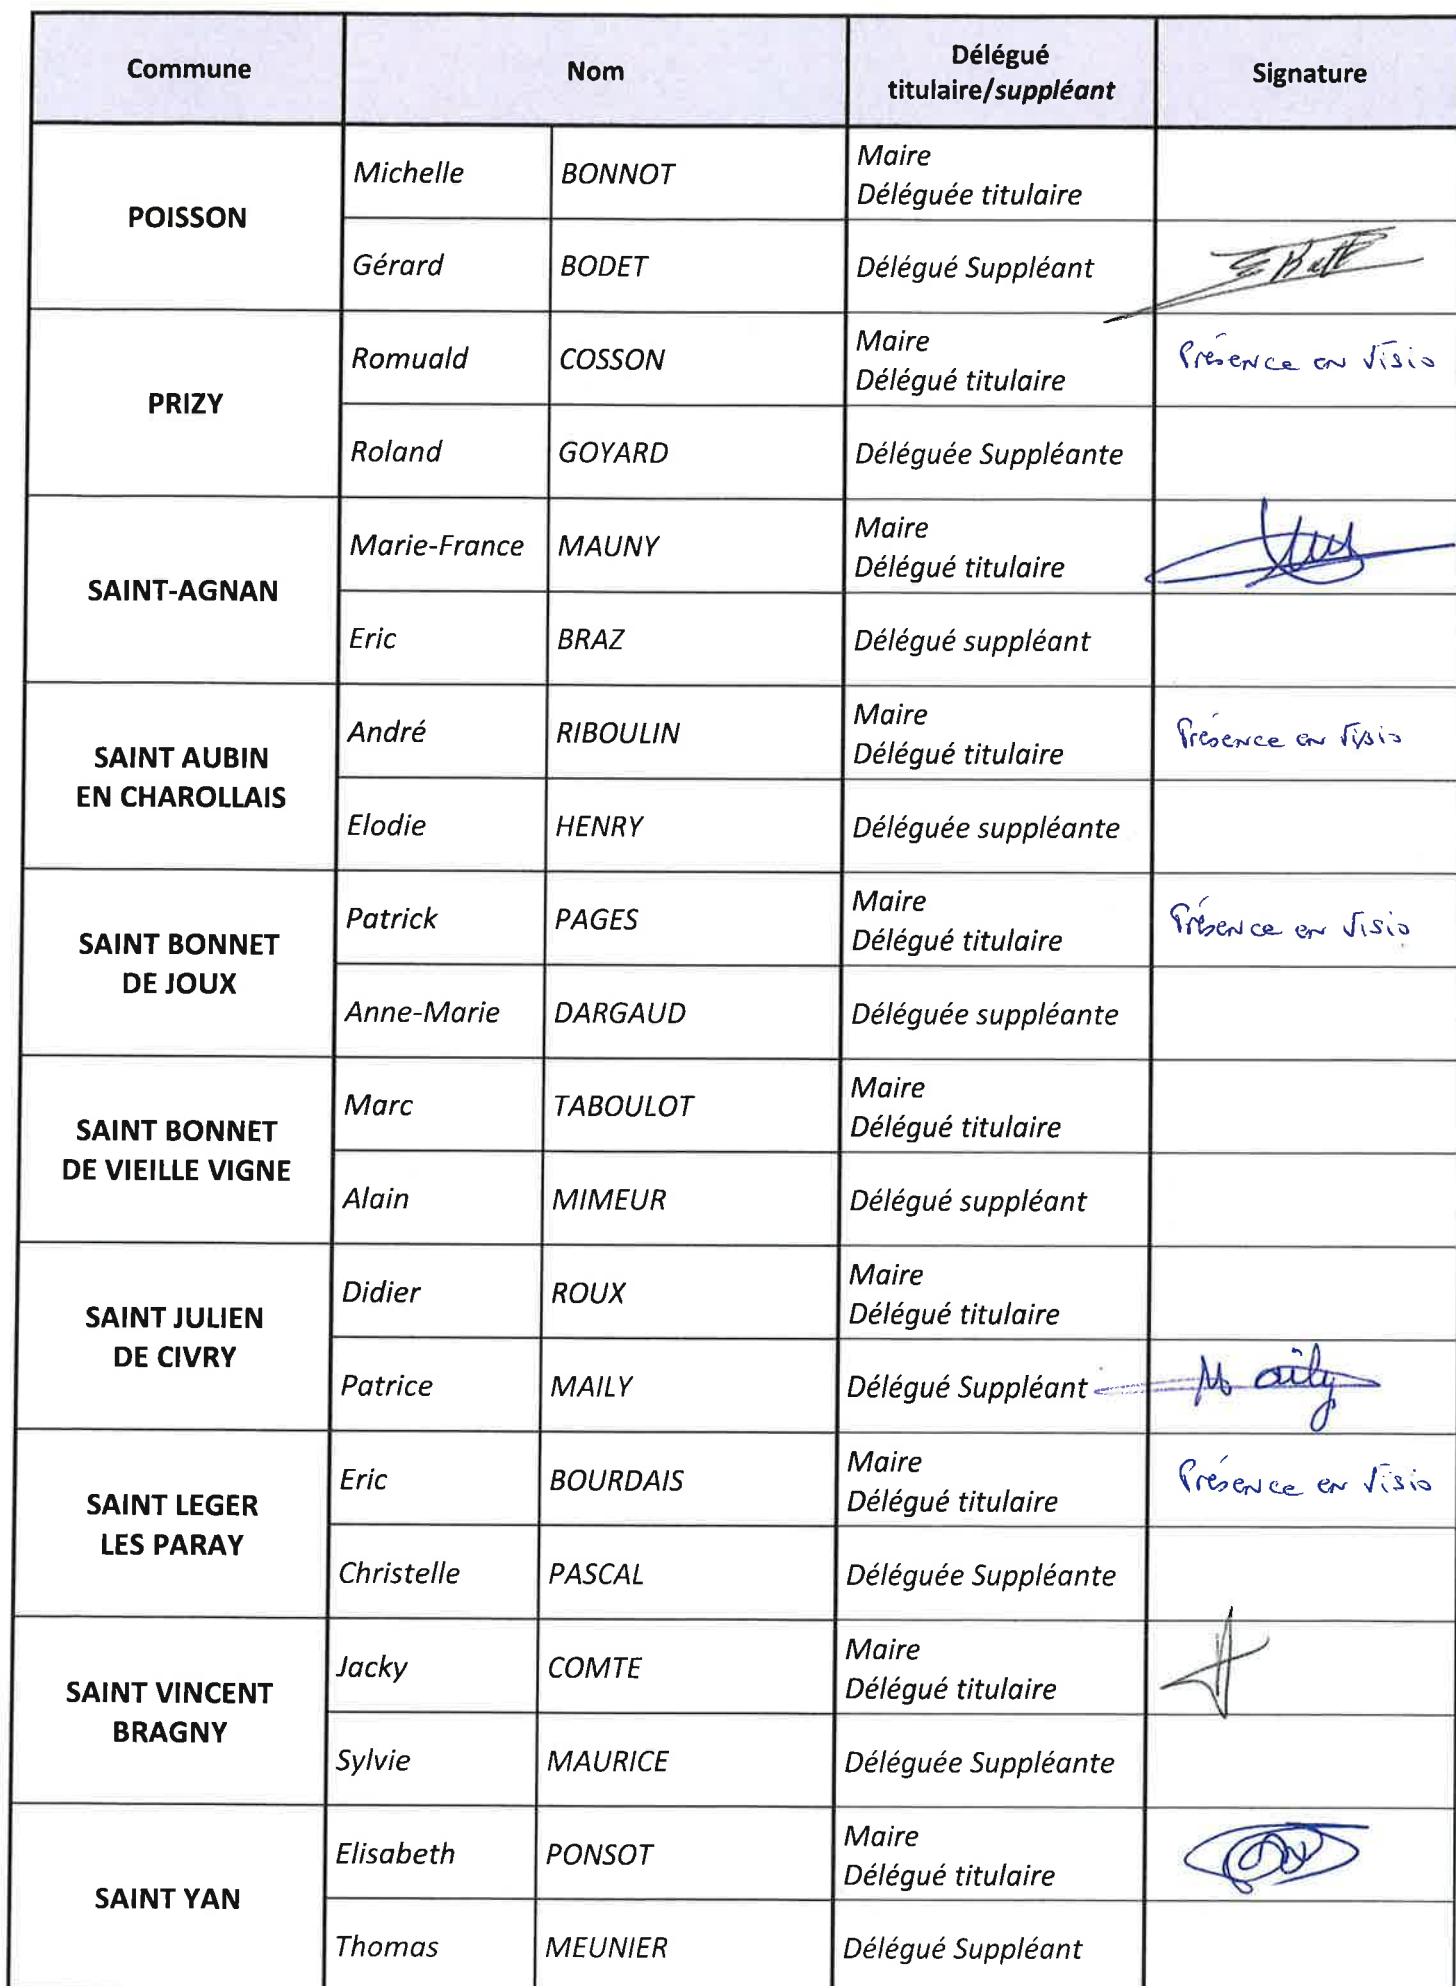 Commune
Nom
Délégué
titulaire/suppléant
Signature
POISSON
Michelle
BONNOT
Maire
Déléguée titulaire
Gérard
BODET
Délégué Suppléant
PRIZY
Romuald
COSSON
Maire
Délégué titulaire
Présence en Visio
Roland
GOYARD
Déléguée Suppléante
SAINT-AGNAN
Marie-France
MAUNY
Maire
Délégué titulaire
Eric
BRAZ
Délégué suppléant
SAINT AUBIN
EN CHAROLLAIS
André
RIBOULIN
Maire
Délégué titulaire
Présence en Visio
Elodie
HENRY
Déléguée suppléante
SAINT BONNET
DE JOUX
Patrick
PAGES
Maire
Délégué titulaire
Présence en Visio
Anne-Marie
DARGAUD
Déléguée suppléante
SAINT BONNET
DE VIEILLE VIGNE
Marc
TABOULOT
Maire
Délégué titulaire
Alain
MIMEUR
Délégué suppléant
SAINT JULIEN
DE CIVRY
Didier
ROUX
Maire
Délégué titulaire
Patrice
MAILY
Délégué Suppléant
Maïly
SAINT LEGER
LES PARAY
Eric
BOURDAIS
Maire
Délégué titulaire
Présence en Visio
Christelle
PASCAL
Déléguée Suppléante
SAINT VINCENT
BRAGNY
Jacky
COMTE
Maire
Délégué titulaire
Sylvie
MAURICE
Déléguée Suppléante
SAINT YAN
Elisabeth
PONSOT
Maire
Délégué titulaire
Thomas
MEUNIER
Délégué Suppléant